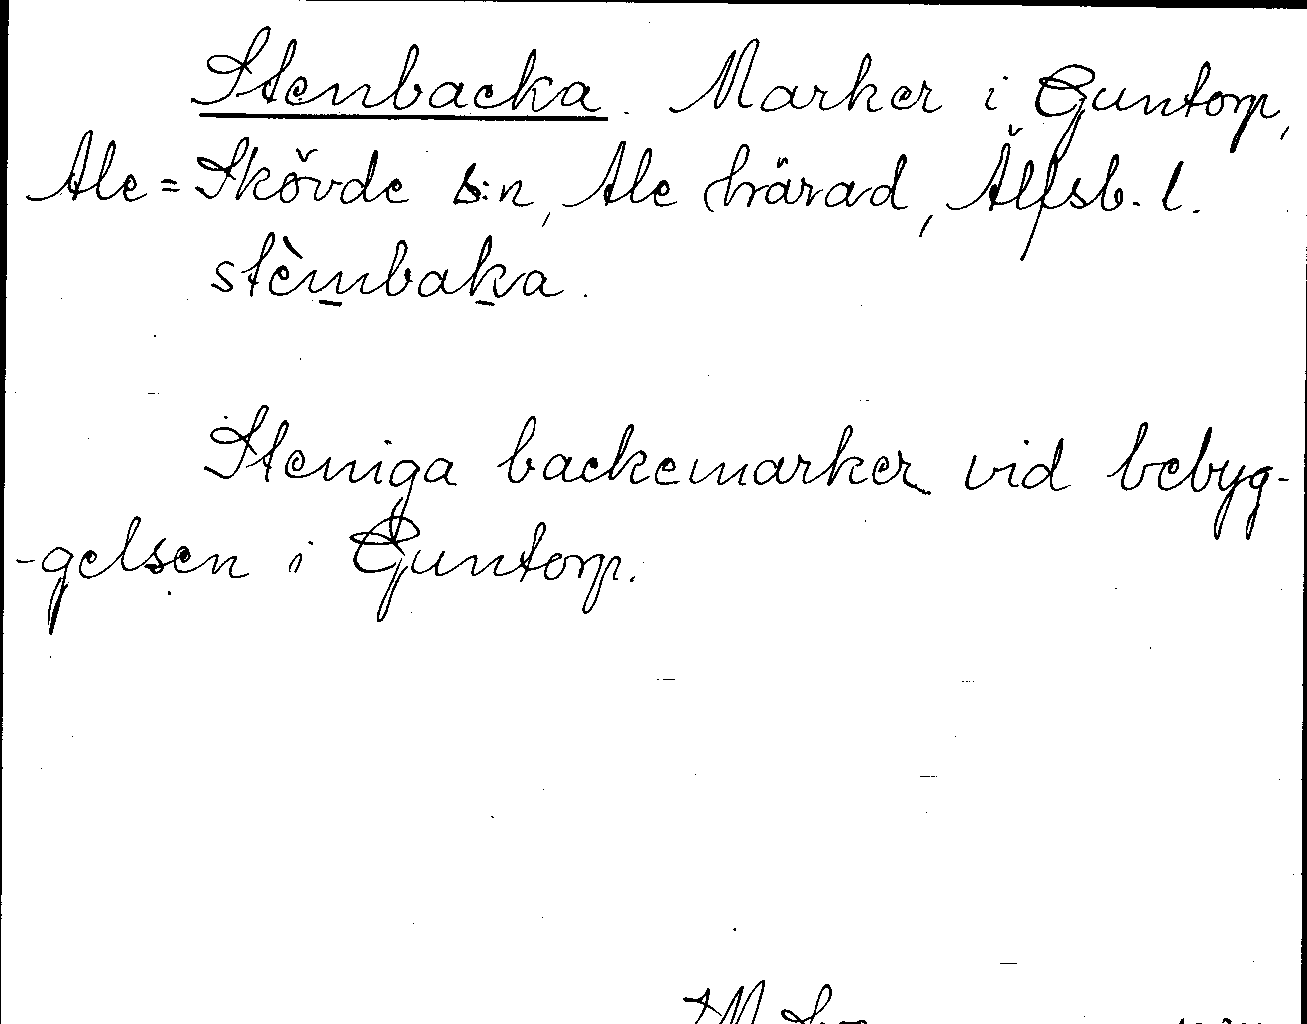 Stenbacka. Marker i Guntorp,
Ale=Skövde s:n, Ale härad, Älfsb. l.
stèmbaka.
Steniga backemarker vid bebyg-
-gelsen i Guntorp.